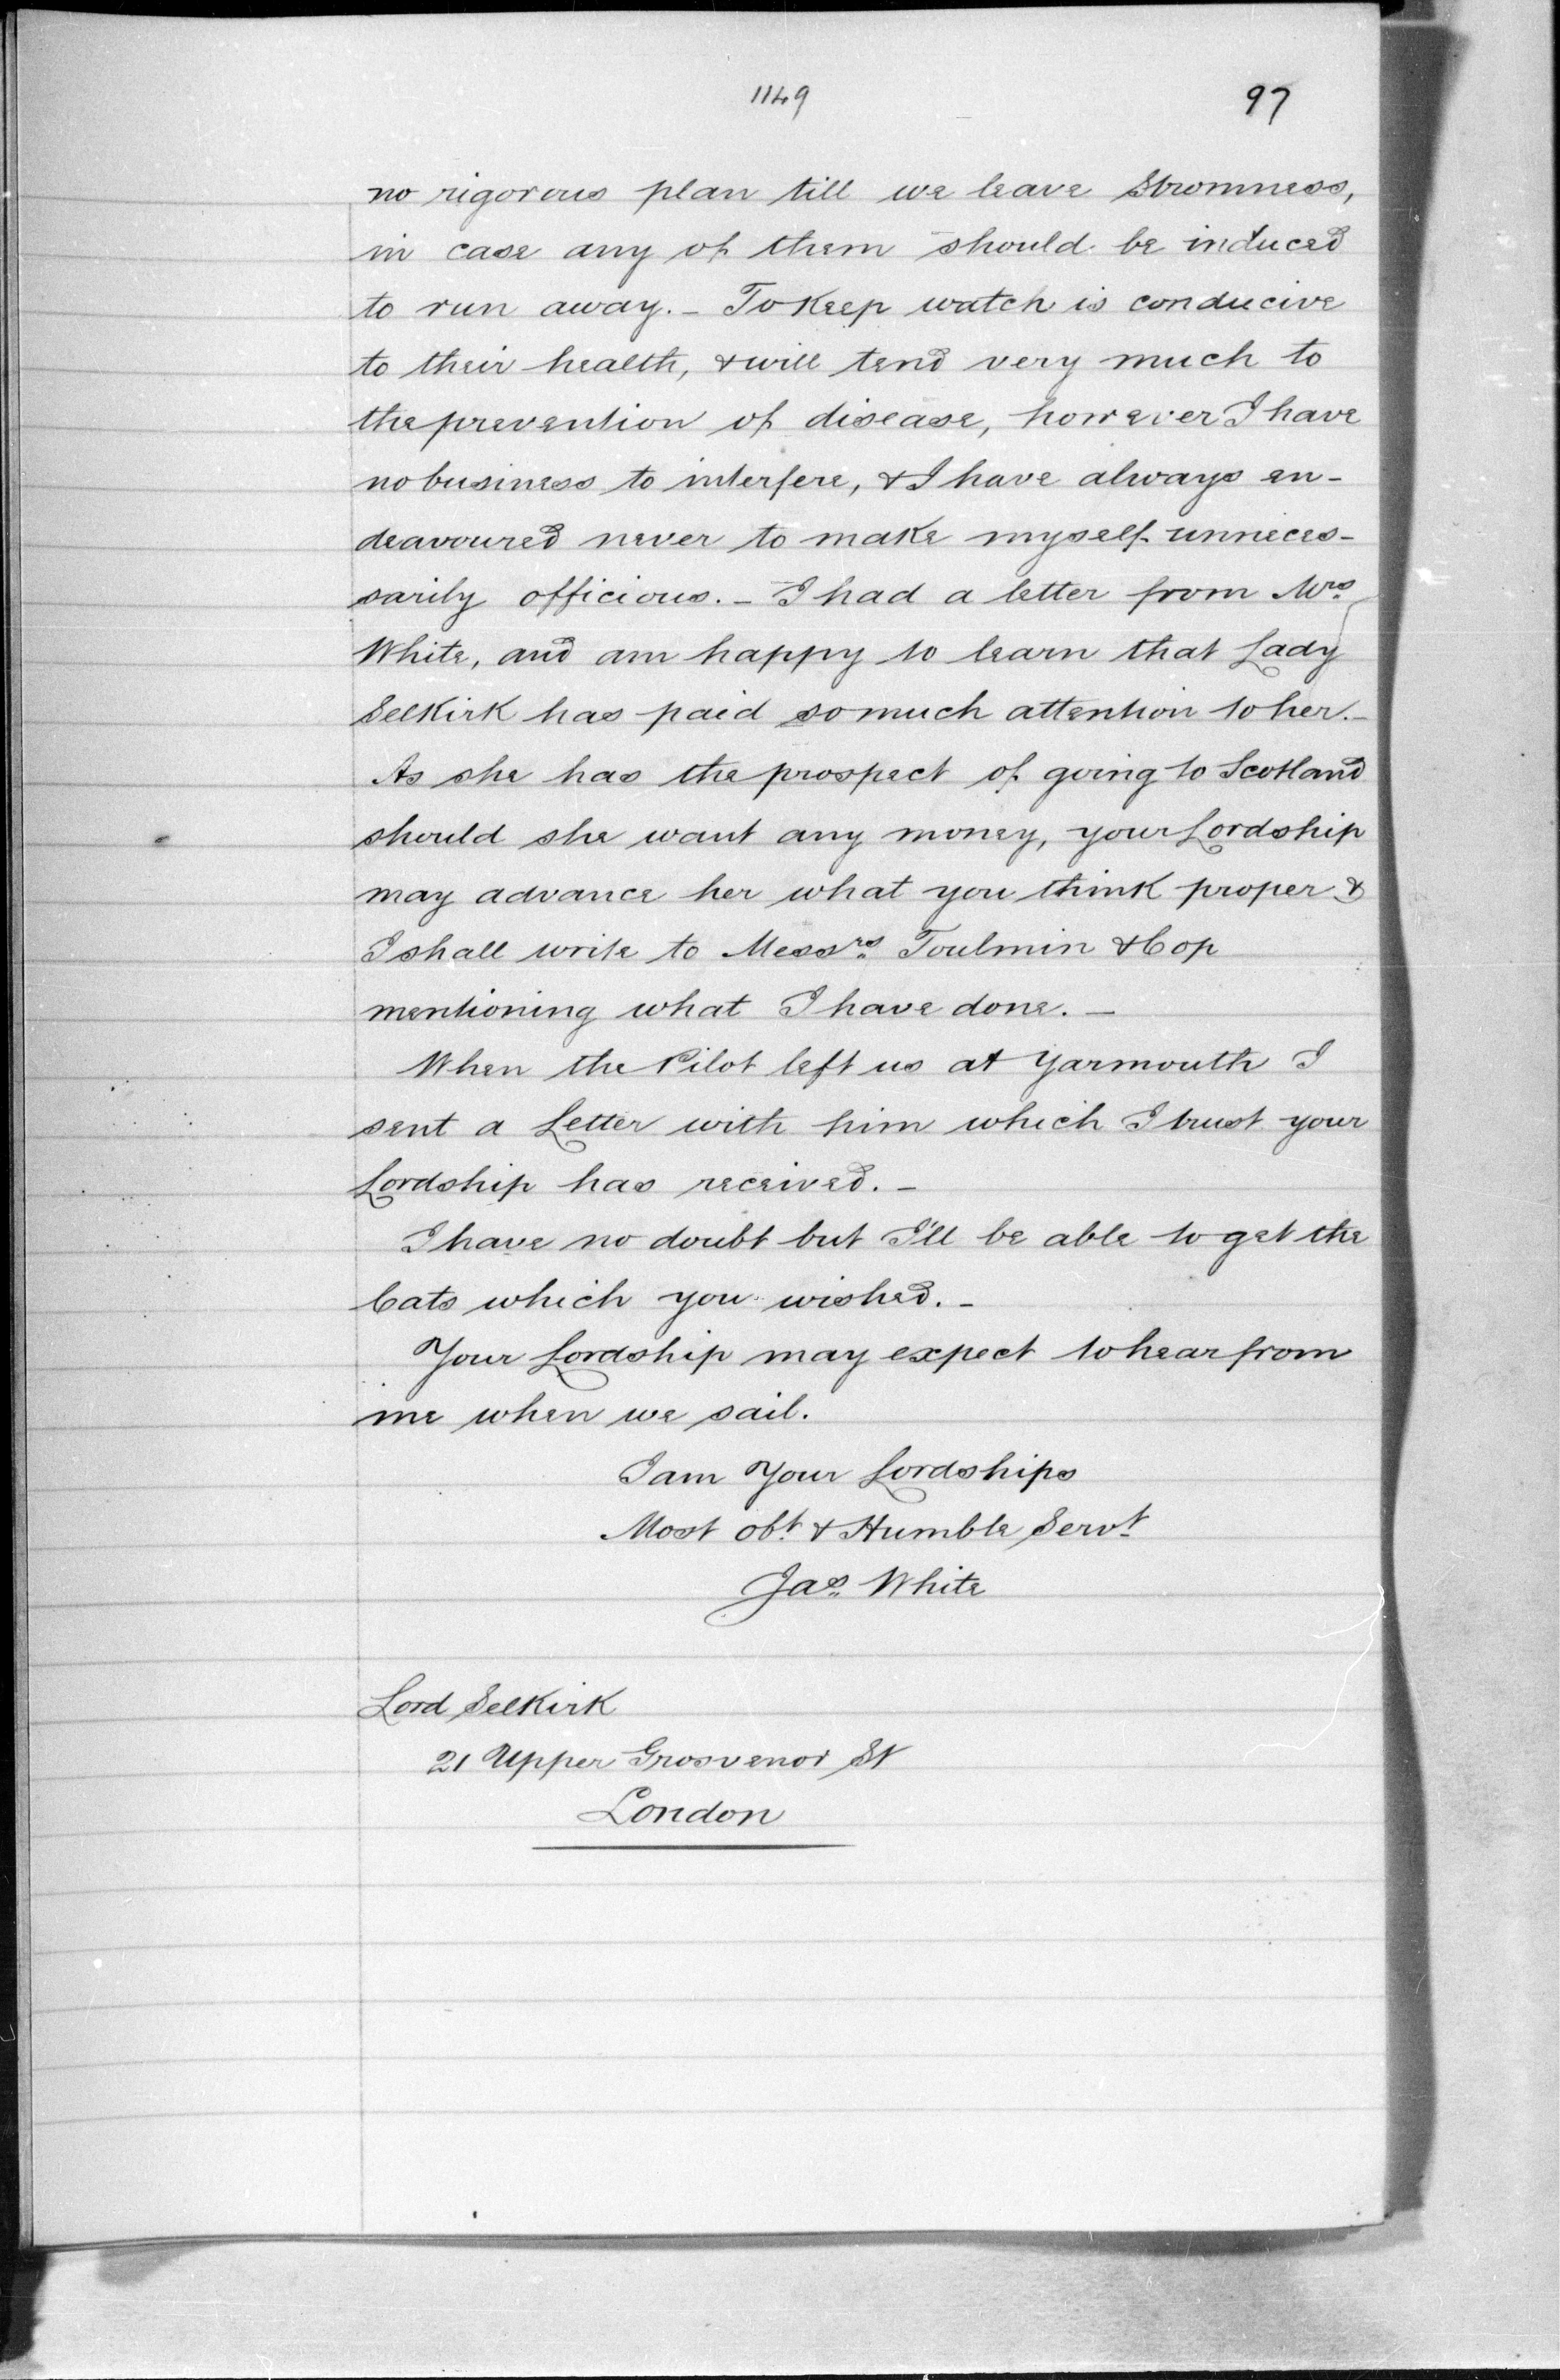 1149 97
no rigorous plan till we leave Stromness,
in case any of them should be induced
to run away. – To Keep watch is conducive
to their health, & will tend very much to
the prevention of disease, however I have
no business to interfere, & I have always en-
deavoured never to make myself unneces-
sarily officious. – I had a letter from Mrs
White, and am happy to learn that Lady
Selkirk has paid so much attention to her. –
As she has the prospect of going to Scotland
should she want any money, your Lordship
may advance her what you think proper &
I shall write to Messrs Toulmin & Cop
mentioning what I have done. –
When the Pilot left us at Yarmouth I
sent a Letter with him which I trust your
Lordship has received. –
I have no doubt but I'll be able to get the
Cats which you wished. –
Your Lordship may expect to hear from
me when we sail.
I am Your Lordships
Most obt & Humble Servt
Jas White
Lord Selkirk
21 Upper Grosvenor St
London